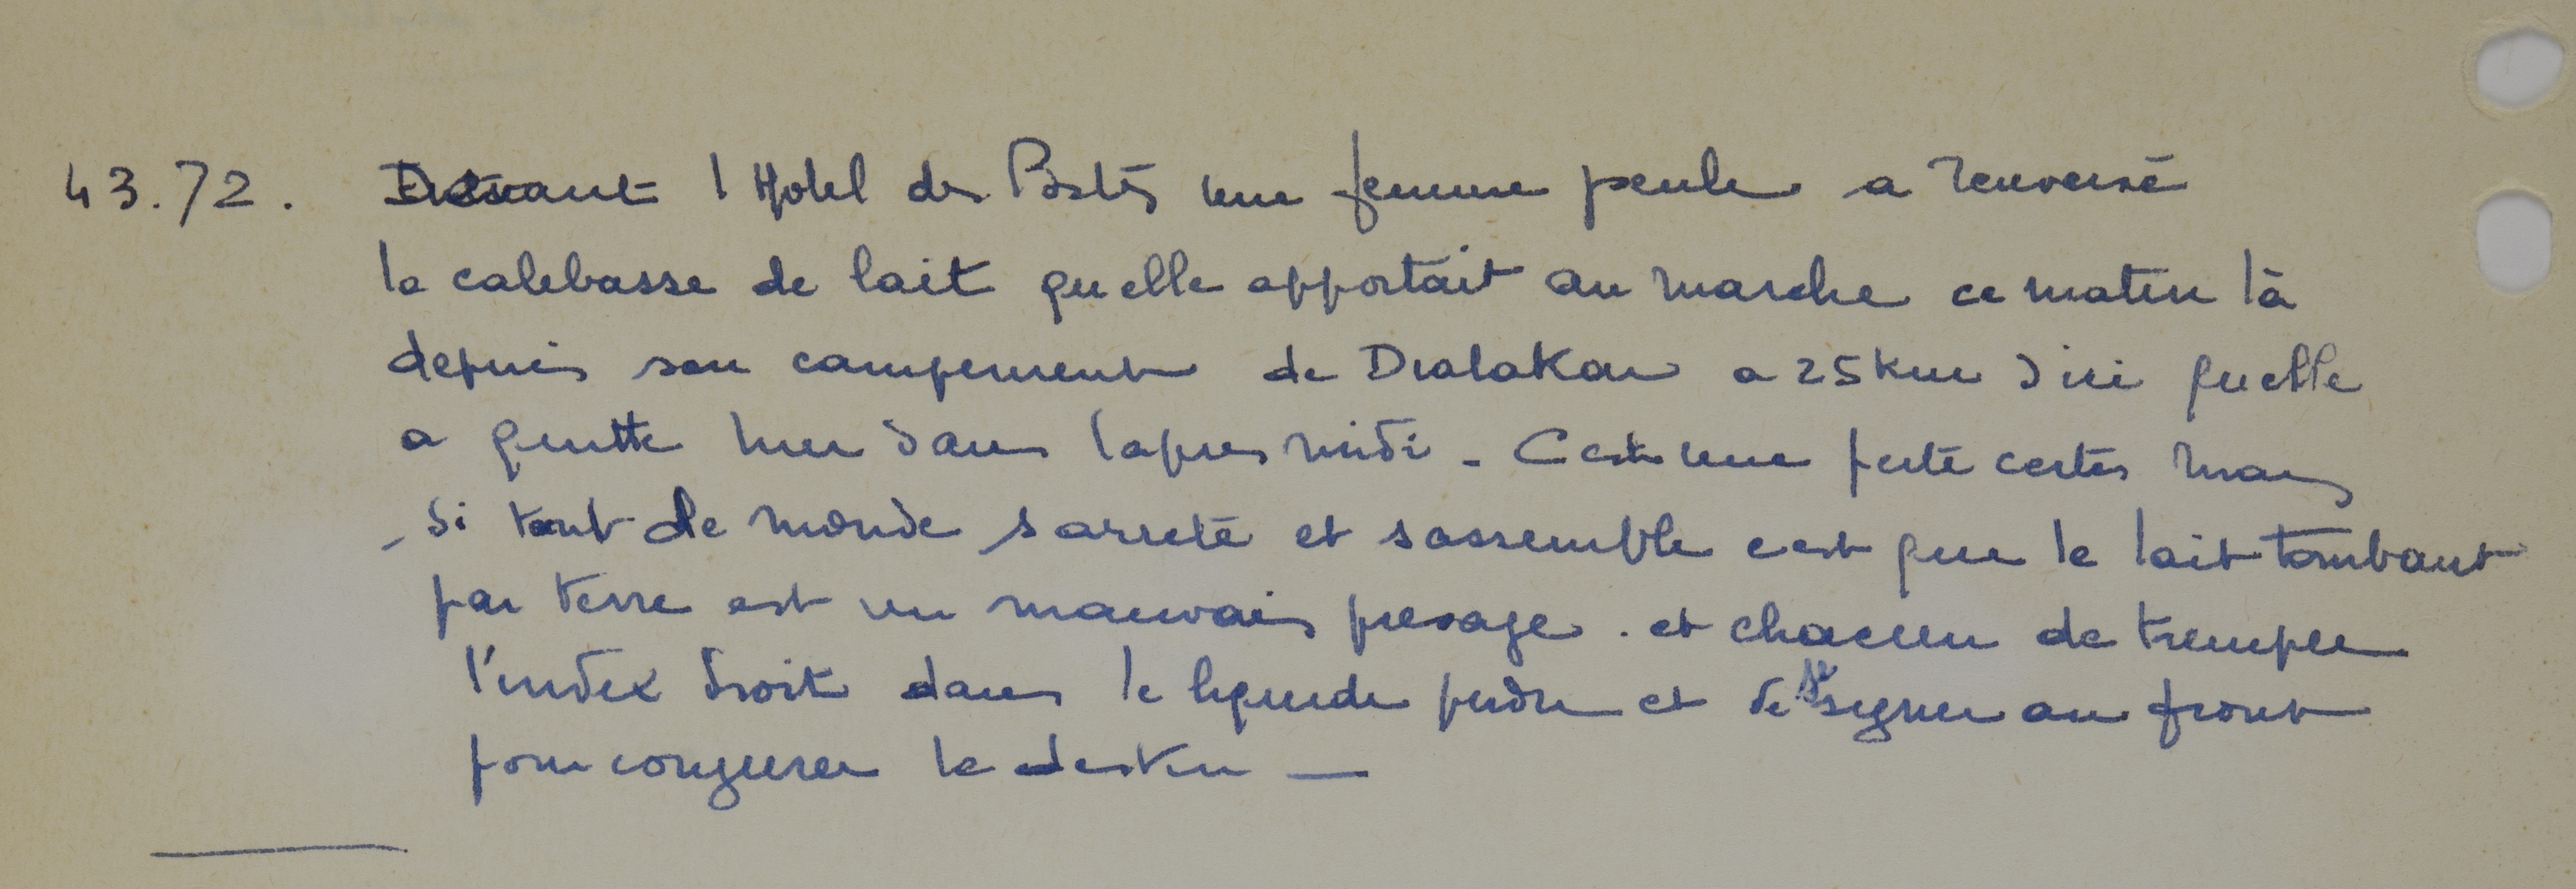 43.72. Devant l Hotel des Postes une femme peule a renversé
la calebasse de lait qu elle apportait au marche ce matin là
depuis son campement de Dialakon a 25 km d ici qu elle
a quitte hier dans l apres midi - C est une perte certes mais
si tant de monde s arrete et s assemble c est que le lait tombant
par terre est un mauvais presage. et chacun de tremper
l'index droit dans le liquide perdu et de se signer au front
pour conjurer le destin —